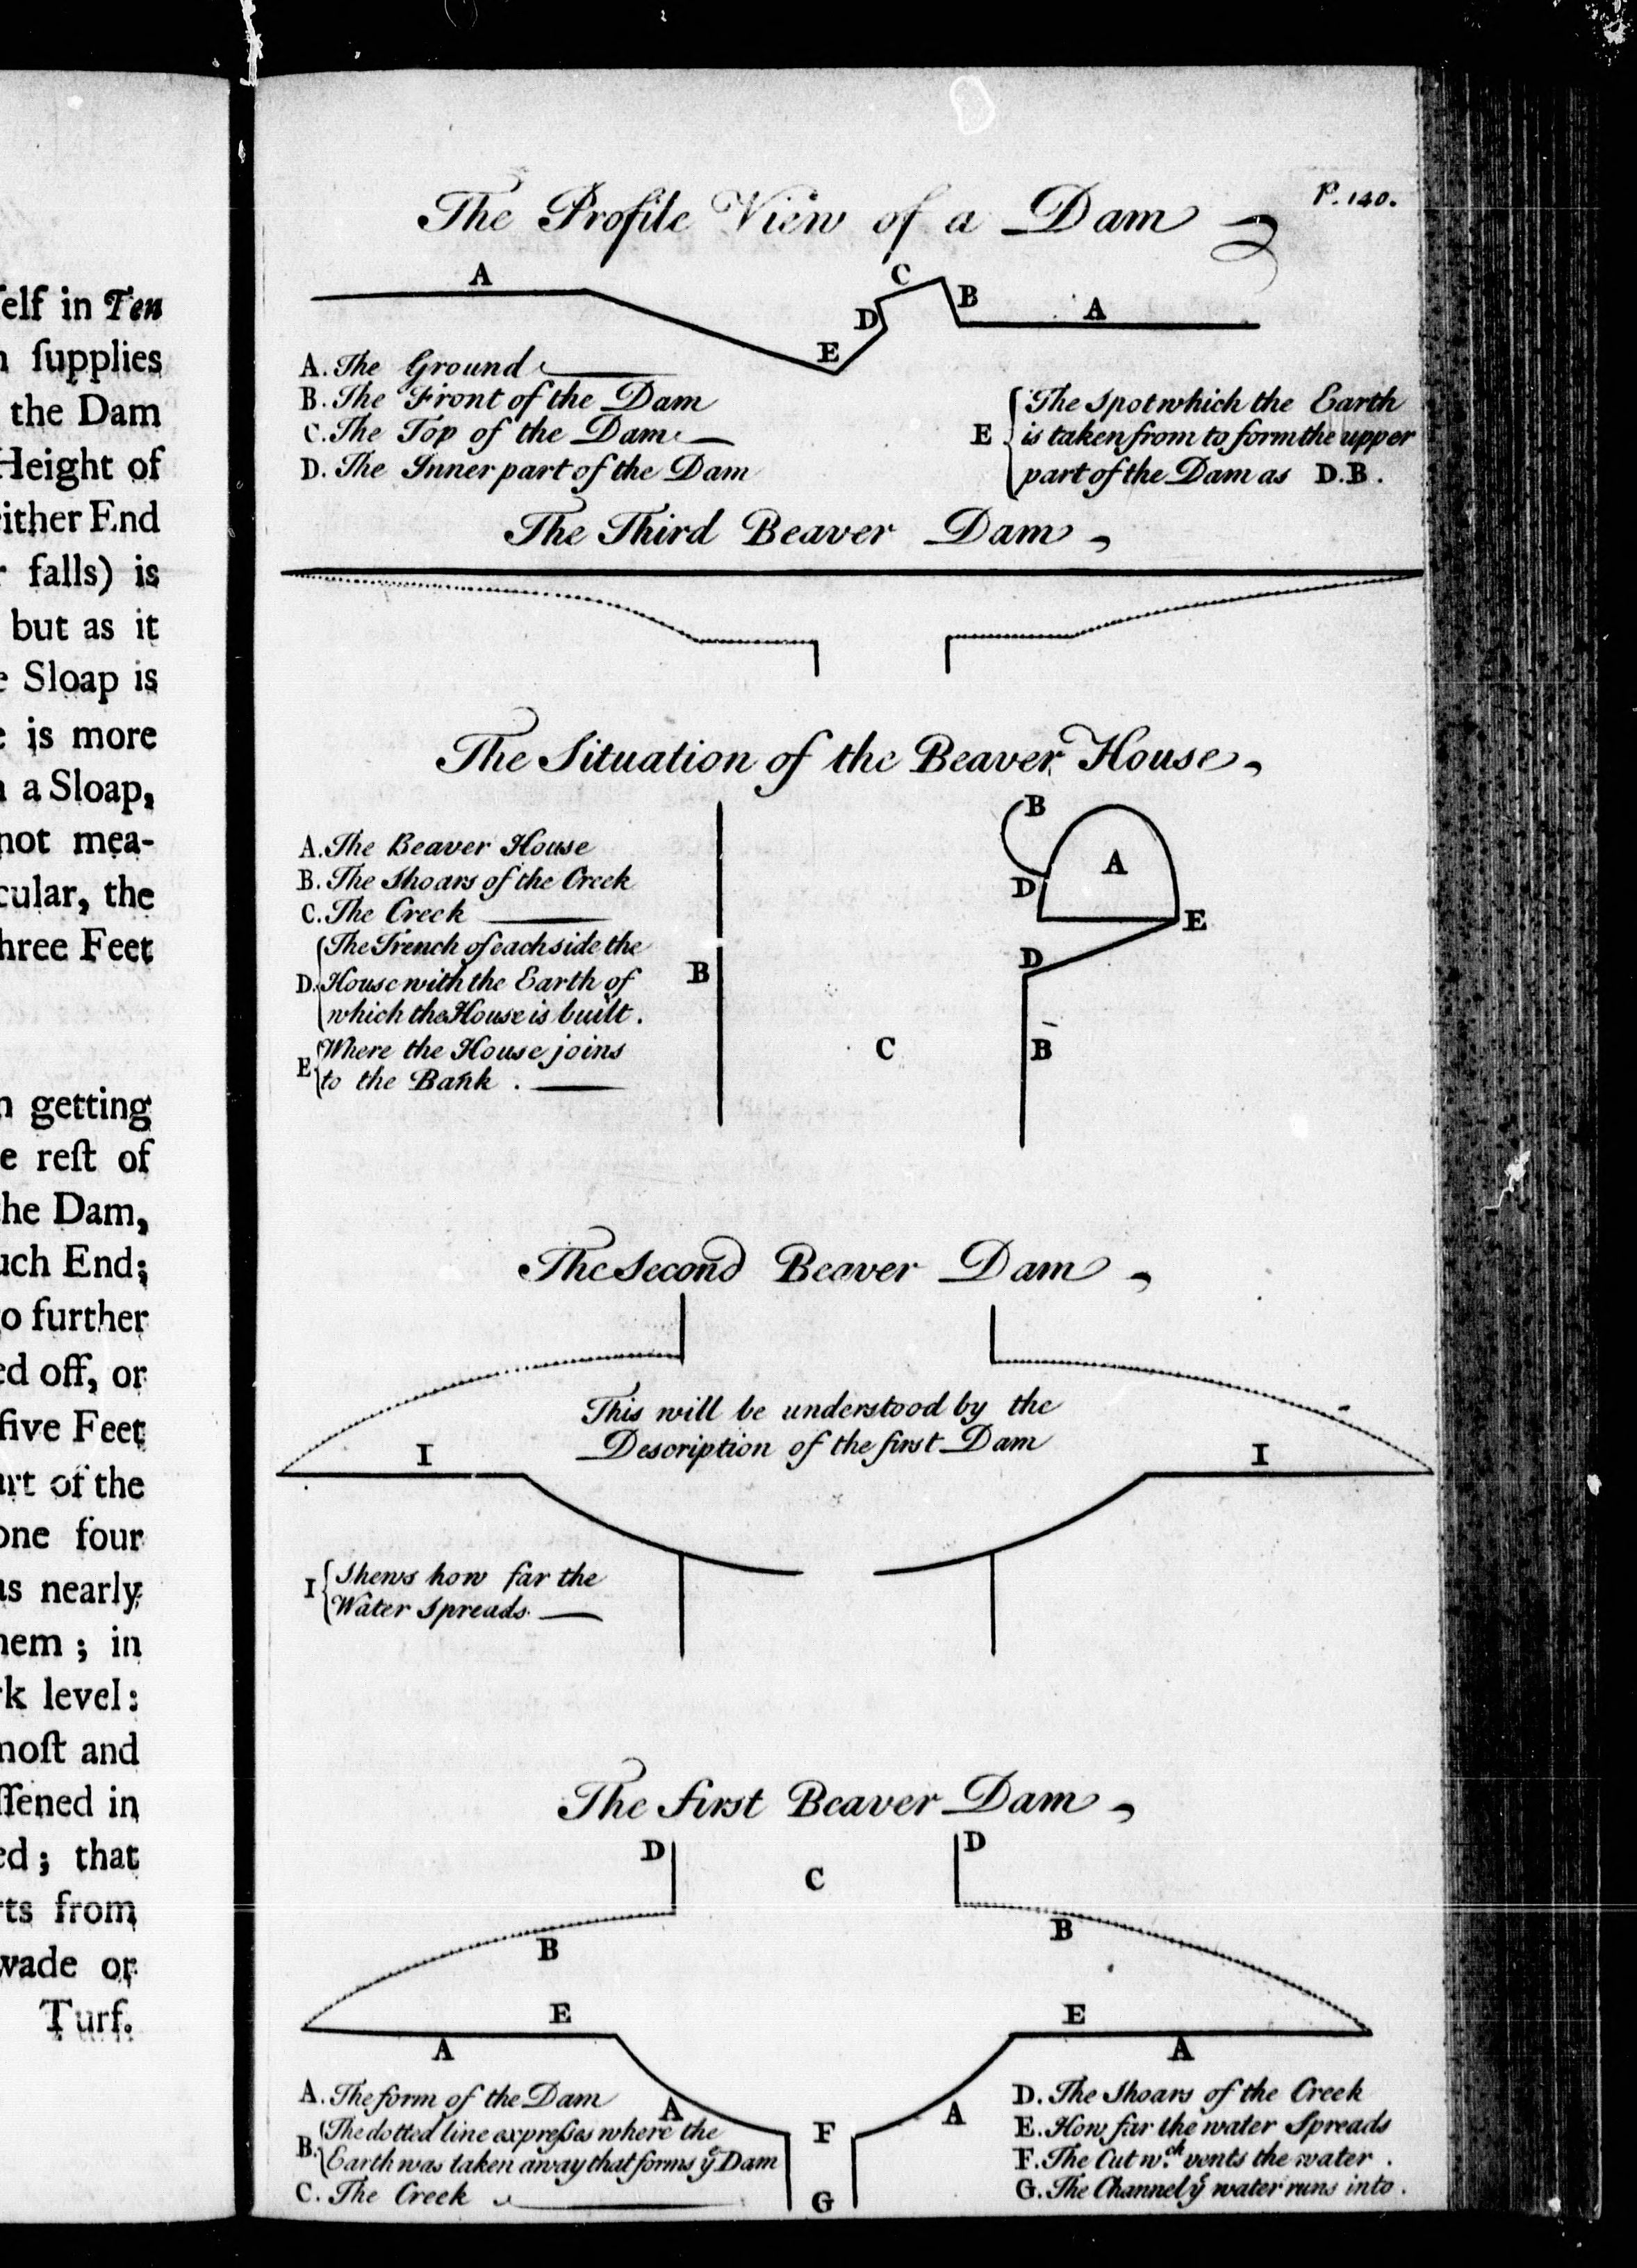 elf in Ten
supplies
the Dam
Height of
either End
falls) is
but as it
Sloap is
is more
a Sloap,
not mea-
cular, the
hree Feet
getting
e reſt of
he Dam,
uch End;
o further
ed off, or
five Feet
art of the
one four
as nearly
hem ; in
k level:
moſt and
ſſened in
ed ; that
rts from
wade or
Turf.
P. 140.
The Profile View of a Dam
A
C
B
A
D
E
A. The Ground
B. The Front of the Dam
C. The Top of the Dam
D. The Inner part of the Dam
E { The Spot which the Earth
is taken from to form the upper
part of the Dam as D.B.
The Third Beaver Dam
The Situation of the Beaver House
A. The Beaver House
B. The Shoars of the Creek
C. The Creek
D. { The Trench of each side the
House with the Earth of
which the House is built.
E { Where the House joins
to the Bank .
B
A
D
E
D
B
C
B
The Second Beaver Dam
This will be understood by the
Description of the first Dam
I
I
I { Shews how far the
Water Spreads.
The First Beaver Dam
D
D
C
B
B
E
E
A
A
A
A
F
G
A. The form of the Dam
B. { The dotted line expreſses where the
Earth was taken away that forms yͤ Dam
C. The Creek
D. The Shoars of the Creek
E. How far the water Spreads
F. The Cut w.ch vents the water .
G. The Channel yͤ water runs into .